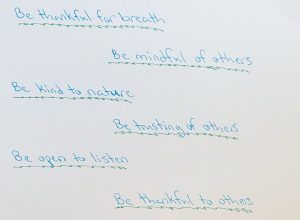 Be thankful for breath
Be mindful of others
Be kind to nature
Be trusting of others
Be open to listen
Be thankful to others